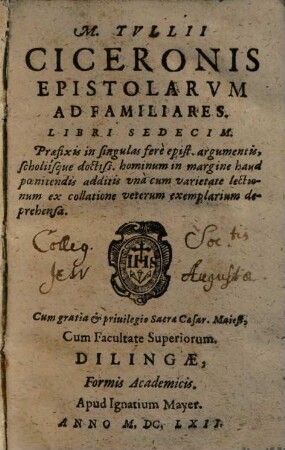 M. TVLLII
CICERONIS
EPISTOLARVM
AD FAMILIARES.
LIBRI SEDECIM.
Præfixis in singulas ferè epist. argumentis,
scholiisque doctiss. hominum in margine haud
pœnitendis additis vnà cum varietate lectio-
num ex collatione veterum exemplarium de-
prehensâ.
Colleg. Soc tis
IHS
Jesu Augustæ
Cum gratia & priuilegio Sacræ Cæsar. Maiest,
Cum Facultate Superiorum.
DILINGÆ,
Formis Academicis.
Apud Ignatium Mayer.
ANNO M. DC. LXII.